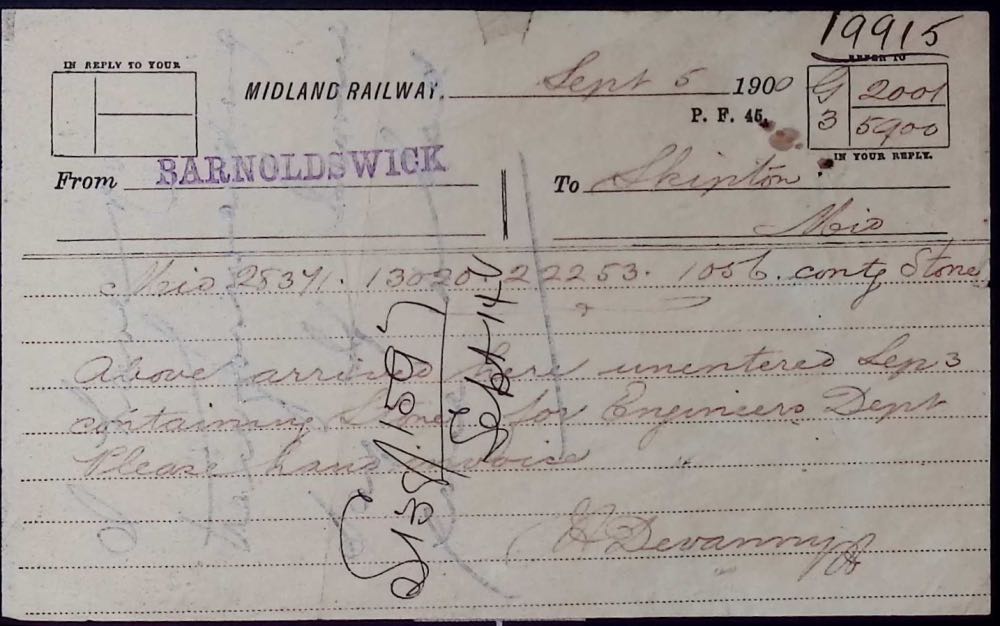 19915
IN REPLY TO YOUR
REFER TO
MIDLAND RAILWAY. Sept 5 1900
G 2001
3 5900
P. F. 45.
IN YOUR REPLY.
From BARNOLDSWICK To Skipton
Mid
Mid 25371. 13020. 22253. 1056. contg Stone
Above arrived here unentered Sep 3
containing Stone for Engineers Dept
Please hand invoice
H Devanny
Sept 14